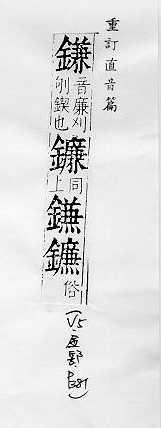 重訂直音篇
鎌音廉刈刎鍥也鐮同上䥥鐮俗
(V5.金部.P381)